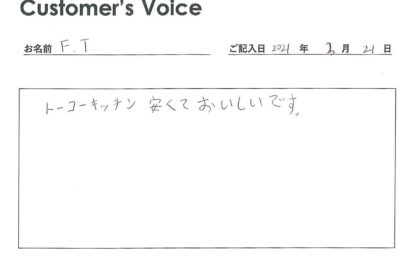 Customer's Voice
お名前 F.T ご記入日 2021 年 月 21 日
トーコーキッチン 安くておいしいです。